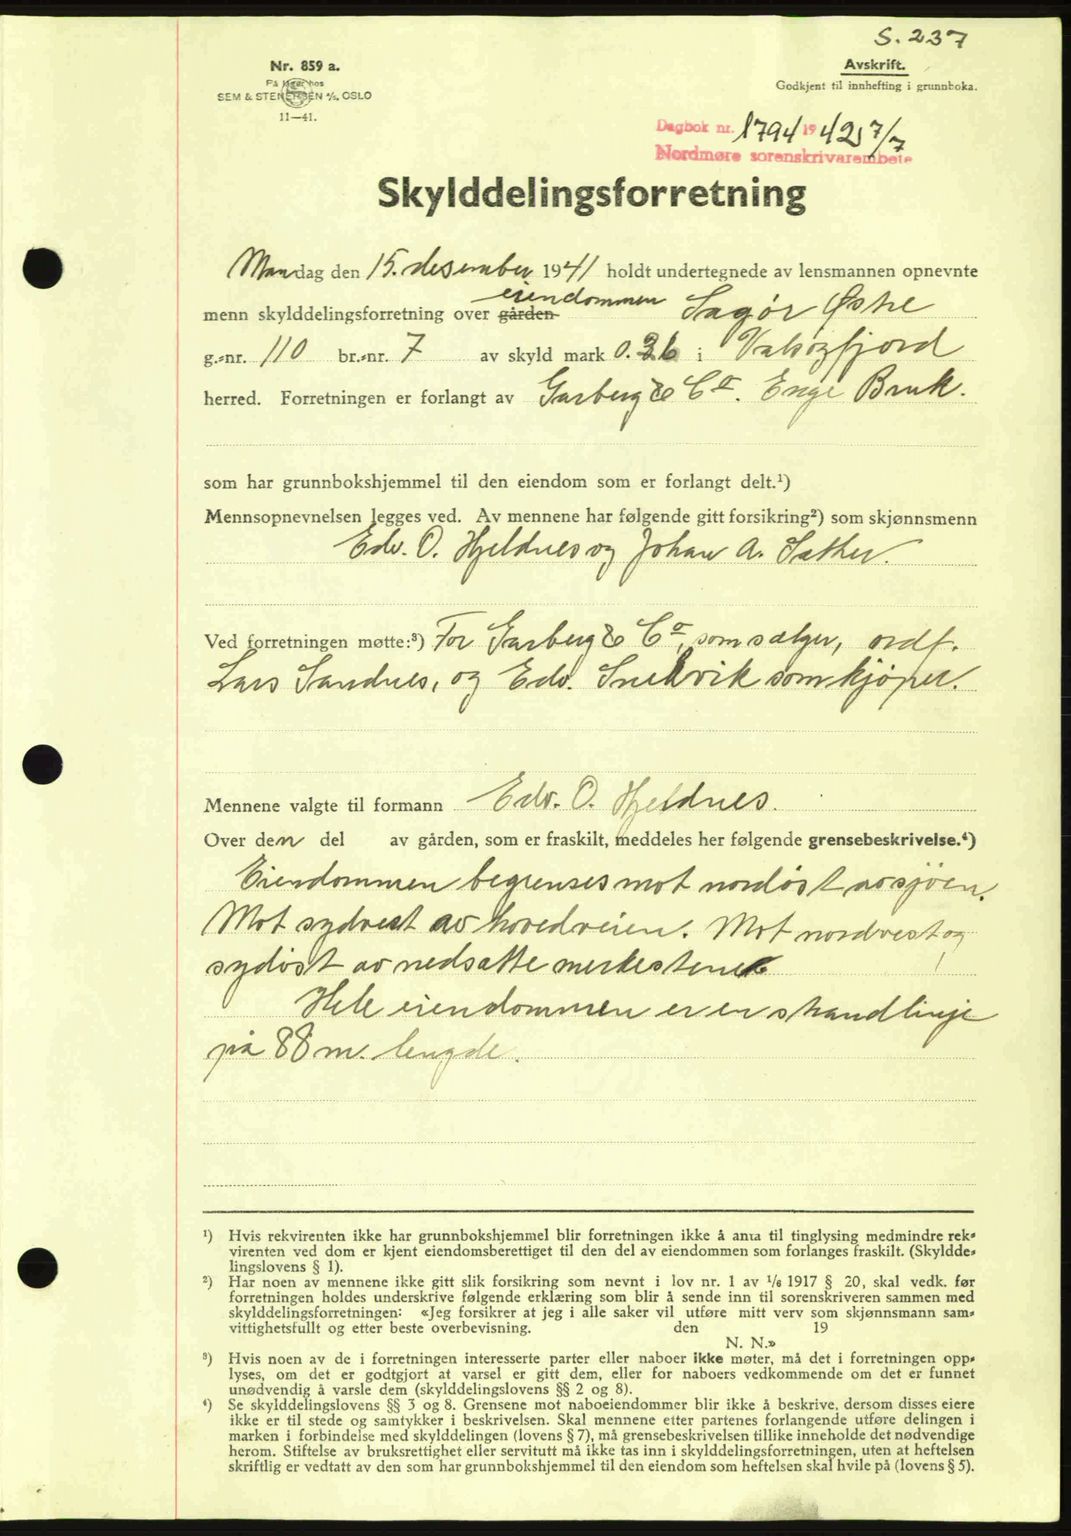 S. 237
Nr. 859 a.
På lager hos
SEM & STENERSEN A/S, OSLO
11—41.
Avskrift.
Godkjent til innhefting i grunnboka.
Dagbok nr. 1794 19 42 7/7
Nordmøre sorenskriverembete
Skylddelingsforretning
Mandag den 15. desember 1941 holdt undertegnede av lensmannen opnevnte
eiendommen
menn skylddelingsforretning over gården Sagør Østre
g.-nr. 110 br.-nr. 7 av skyld mark 0.36 i Valsøyfjord
herred. Forretningen er forlangt av Garberg & Co. Enge Bruk.
som har grunnbokshjemmel til den eiendom som er forlangt delt.¹)
Mennsopnevnelsen legges ved. Av mennene har følgende gitt forsikring²) som skjønnsmenn
Edv. O. Hjeldnes og Johan A. Sæther.
Ved forretningen møtte:³) For Garberg & Co, som sælger, ordf.
Lars Sandnes, og Edv. Snekvik som kjøper.
Mennene valgte til formann Edv. O. Hjeldnes.
Over den del av gården, som er fraskilt, meddeles her følgende grensebeskrivelse.⁴)
Eiendommen begrenses mot nordøst av sjøen.
Mot sydvest av hovedveien. Mot nordvest og
sydøst av nedsatte merkestene
Hele eiendommen er en strandlinje
på 88 m. lengde.
¹) Hvis rekvirenten ikke har grunnbokshjemmel blir forretningen ikke å anta til tinglysing medmindre rek-
virenten ved dom er kjent eiendomsberettiget til den del av eiendommen som forlanges fraskilt. (Skyldde-
lingslovens § 1).
²) Har noen av mennene ikke gitt slik forsikring som nevnt i lov nr. 1 av 1/6 1917 § 20, skal vedk. før
forretningen holdes underskrive følgende erklæring som blir å sende inn til sorenskriveren sammen med
skylddelingsforretningen: «Jeg forsikrer at jeg i alle saker vil utføre mitt verv som skjønnsmann sam-
vittighetsfullt og etter beste overbevisning. den 19
N. N.»
³) Hvis noen av de i forretningen interesserte parter eller naboer ikke møter, må det i forretningen opp-
lyses, om det er godtgjort at varsel er gitt dem, eller for naboers vedkommende om det er funnet
unødvendig å varsle dem (skylddelingslovens §§ 2 og 8).
⁴) Se skylddelingslovens §§ 3 og 8. Grensene mot naboeiendommer blir ikke å beskrive, dersom disses eiere
ikke er til stede og samtykker i beskrivelsen. Skal mennene etter partenes forlangende utføre delingen i
marken i forbindelse med skylddelingen (lovens § 7), må grensebeskrivelsen tillike inneholde det nødvendige
herom. Stiftelse av bruksrettighet eller servitutt må ikke tas inn i skylddelingsforretningen, uten at heftelsen
skriftlig er vedtatt av den som har grunnbokshjemmel til den eiendom som heftelsen skal hvile på (lovens § 5).